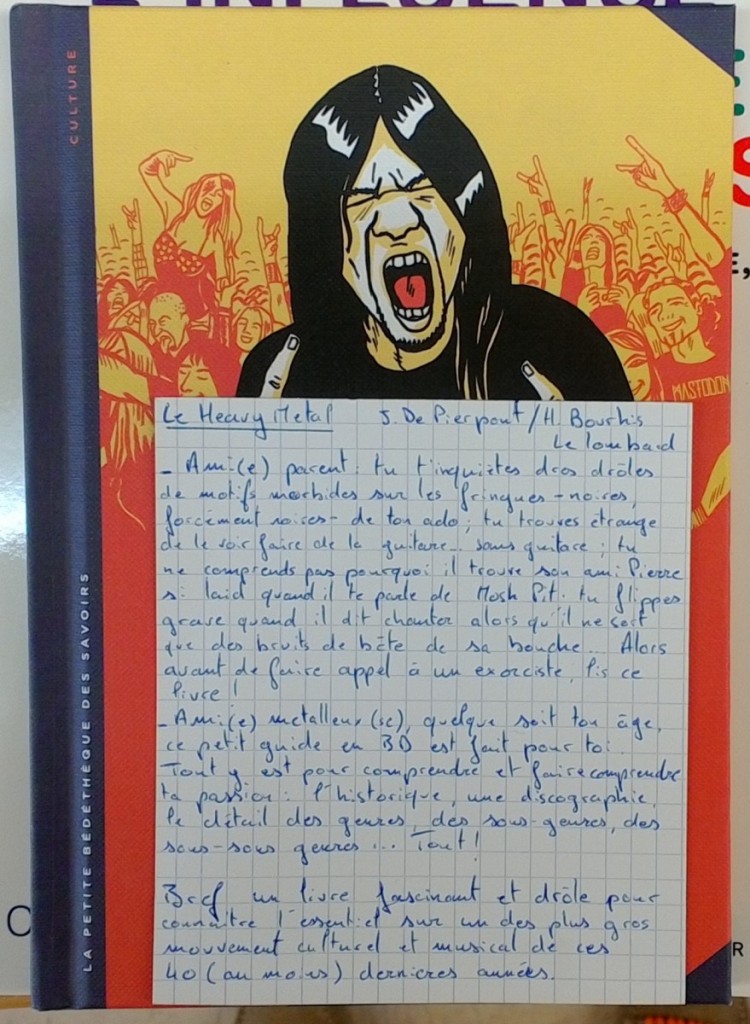 L'INFLUENCE
CULTURE
MASTODON
LA PETITE BÉDÉTHÈQUE DES SAVOIRS
Le Heavy Metal J. De Pierpont / H. Bourhis
Le lombard
- Ami(e) parent : tu t'inquiètes des drôles
de motifs morbides sur les fringues - noires,
forcément noires - de ton ado ; tu trouves étrange
de le voir faire de la guitare... sans guitare ; tu
ne comprends pas pourquoi il trouve son ami Pierre
si laid quand il te parle de Mosh Pit. tu flippes
grave quand il dit chanter alors qu'il ne sort
que des bruits de bête de sa bouche... Alors
avant de faire appel à un exorciste, lis ce
livre !
- Ami(e) metalleux (se), quelque soit ton âge,
ce petit guide en BD est fait pour toi.
Tout y est pour comprendre et faire comprendre
ta passion : l'historique, une discographie,
le détail des genres, des sous-genres, des
sous-sous genres... Tout !
Bref un livre fascinant et drôle pour
connaître l'essentiel sur un des plus gros
mouvement culturel et musical de ces
40 (au moins) dernières années.